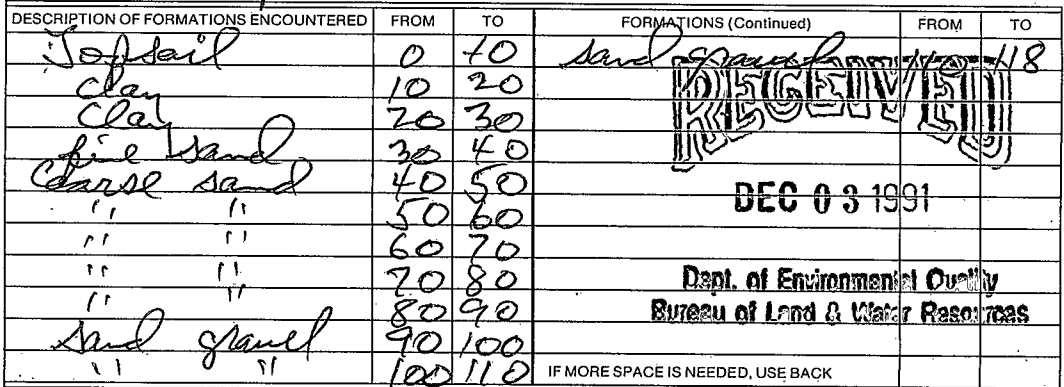 DESCRIPTION OF FORMATIONS ENCOUNTERED FROM TO
Topsoil 0 10
Clay 10 20
Clay 20 30
fine sand 30 40
Coarse sand 40 50
" " 50 60
" " 60 70
" " 70 80
" " 80 90
sand gravel 90 100
" " 100 110
FORMATIONS (Continued) FROM TO
sand gravel 110 118
RECEIVED
DEC 03 1991
Dept. of Environmental Quality
Bureau of Land & Water Resources
IF MORE SPACE IS NEEDED, USE BACK